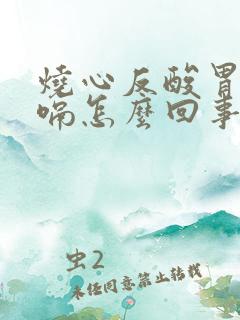 燒心反酸胃
嗝怎麼回事
虫2
未经同意禁止转载